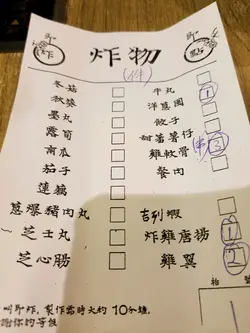 即炸
炸物
即點
(件)
冬菇
秋葵
墨丸
露筍
南瓜
茄子
蓮藕
蔥爆豬肉丸
芝士丸
芝心腸
牛丸 1
洋蔥圈
餃子
甜薯薯仔
雞軟骨 (串) 3
餐肉
吉列蝦
炸雞唐揚 1
雞翼 2
叫即炸，製作需時大約10分鐘，
謝你的等候
枱